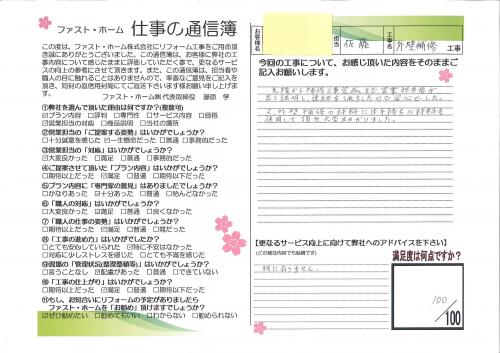 ファスト・ホーム 仕事の通信簿
この度は、ファスト・ホーム株式会社にリフォーム工事をご用命頂き誠にありがとうございました。この通信簿は、お客様に弊社の工事内容について感じたままに評価していただく事で、更なるサービスの向上の参考にさせて頂きます。また、この通信簿は、担当者や職人の目に触れることはありませんので、率直なご意見をご記入頂き、同封の返信用封筒にてご返送下さいます様お願い申し上げます。
ファスト・ホーム㈱代表取締役 藤原 学
①弊社を選んで頂いた理由は何ですか?(複数可)
☑プラン内容 □評判 □専門性 ☑サービス内容 □価格
☑営業担当の対応 □商品説明 □当社の場所
②営業担当の「ご提案する姿勢」はいかがでしょうか?
□十分誠意を感じた ☑一生懸命だった □普通 □悪い
③営業担当の「対応」はいかがでしょうか?
☑大変良かった □満足 □普通 □事務的だった
④ご提案させて頂いた「プラン内容」はいかがでしょうか?
□期待以上だった ☑満足 □普通 □期待以下だった
⑤プラン内容に「専門家の意見」はありましたでしょうか?
□かなりあった ☑十分あった □普通 □殆んどなかった
⑥「職人の対応」はいかがでしょうか?
□大変良かった ☑満足 □普通 □良くなかった
⑦「職人の仕事の姿勢」はいかがでしょうか?
□期待以上だった ☑満足 □普通 □雑だった
⑧「工事の進め方」はいかがでしたか?
□とても安心していられた ☑特に不安はなかった
□対応に少しストレスを感じた □とても不満を感じた
⑨現場の「管理状況(整理整頓等)」はいかがでしたか?
□言うことなし ☑配慮があった □普通 □できていない
⑩「工事の仕上がり」はいかがでしょうか?
□期待以上だった ☑満足 □普通 □期待以下だった
⑪もし、お知合いにリフォームの予定がありましたら
ファスト・ホームを「お勧め」頂けますでしょうか?
☑ぜひ勧めたい □勧めてもいい □わからない □勧められない
お客様名
担当
佐藤
工事名
外壁補修 工事
今回の工事について、お感じ頂いた内容をそのままご記入お願いします。
使用して頂き大変助かりました。
【更なるサービス向上に向けて弊社へのアドバイスを下さい】
(どの様な内容でも結構です)
特に有りません。
満足度は何点ですか?
100
/100